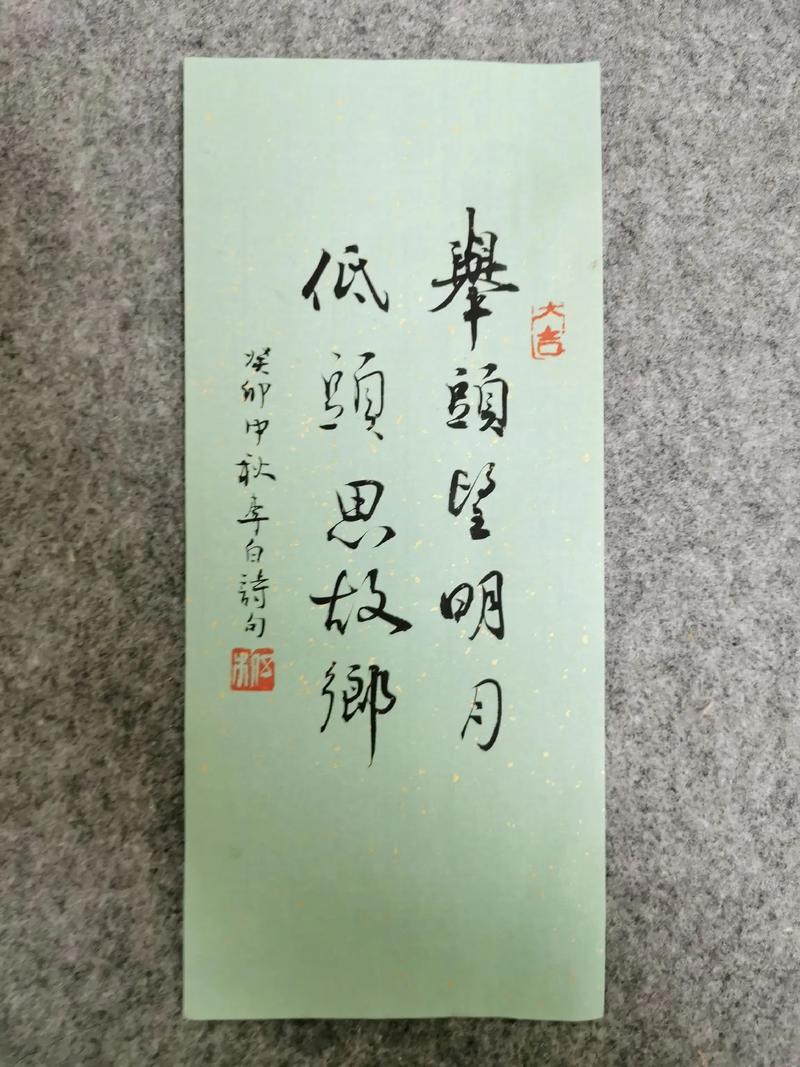 大吉
舉頭望明月
低頭思故鄉
癸卯中秋李白詩句